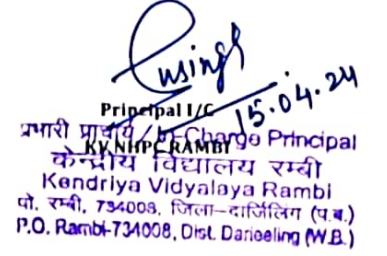 15.04.24
Principal I/C
प्रभारी प्राचार्य / In-Charge Principal
KV NHPC RAMBI
केन्द्रीय विद्यालय रम्बी
Kendriya Vidyalaya Rambi
पो. रम्बी, 734008, जिला-दार्जिलिंग (प.ब.)
P.O. Rambi-734008, Dist. Darjeeling (W.B.)